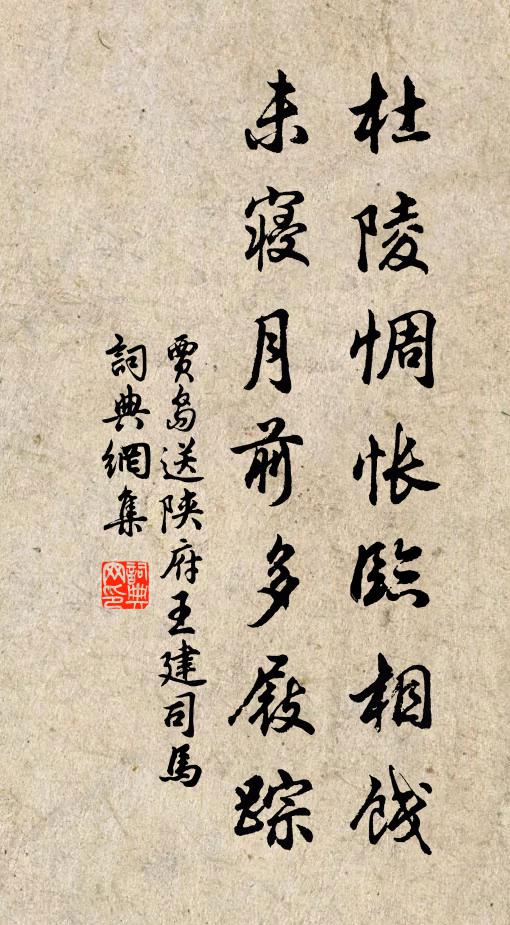 杜陵惆悵臨相餞
未寢月前多屐踪
賈島送陝府王建司馬
詞典網集
詞典网印